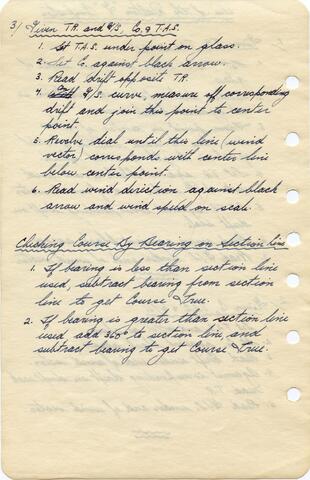 3) Given T.R. and G/S, Co. & T.A.S.
1. Set T.A.S. under point on glass.
2. Set Co. against black arrow.
3. Read drift opposite T.R.
4. On G/S. curve, measure off corresponding
drift and join this point to center
point.
5. Revolve dial until this line (wind
vector) corresponds with center line
below center point.
6. Read wind direction against black
arrow and wind speed on scale.
Checking Course By Bearing on Section Line
1. If bearing is less than section line
used, subtract bearing from section
line to get Course True.
2. If bearing is greater than section line
used, add 360° to section line, and
subtract bearing to get Course True.